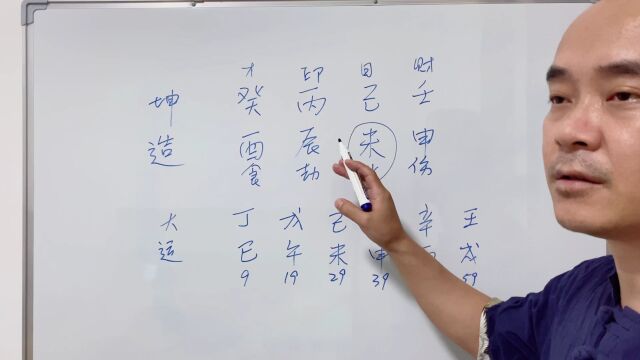 才 印 日 财
坤 癸 丙 己 壬
造 酉 辰 未 申
食 劫 伤
大 丁 戊 己 辛 壬
运 巳 午 未 申 戌
9 19 29 39 59